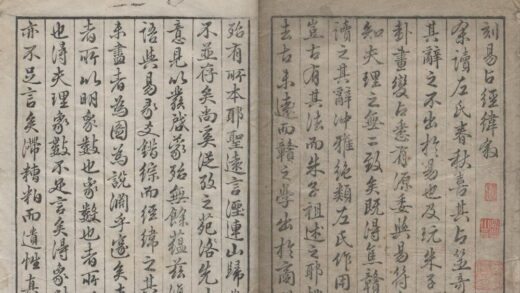 刻易占經緯敘
余讀左氏春秋喜其占筮奇
其辭之不出於易也及玩朱子
卦畫變占悉有源委與易符
知夫理之無二致矣既得焦贛
讀之其辭沖雅絕類左氏作用
豈古有其法而朱子祖述之耶
去古未遠而贛之學出於商
殆有所本耶聖遠言湮連山歸
不並存矣尚奚從考之苑洛先
意見以發啟蒙殆無餘蘊茲
語與易彖爻錯綜而經緯之其
未盡者為圖為說淵乎邃矣
者所以明象數也象數也者所
也得夫理象數不足言矣得象
亦不足言矣滯糟粕而遺性真